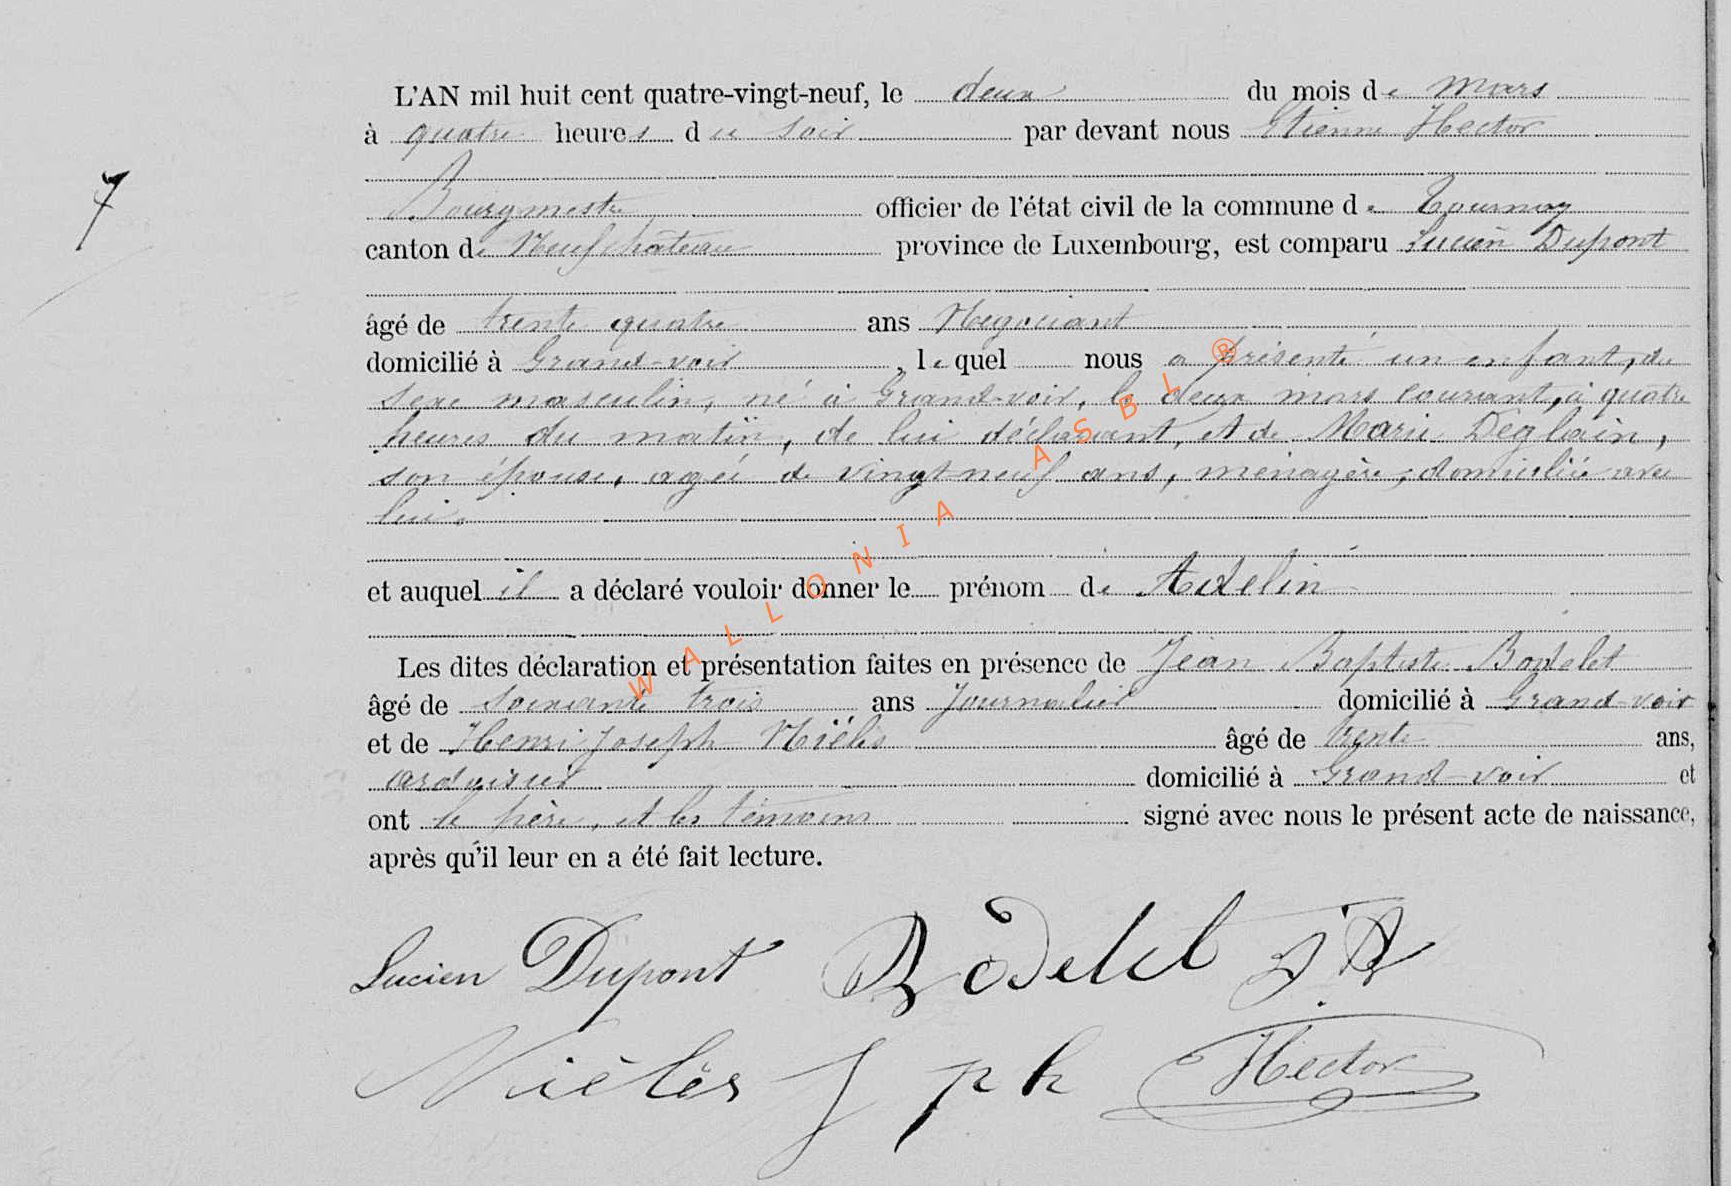 L'AN mil huit cent quatre-vingt-neuf, le deux du mois de Mars
à quatre heures du soir par devant nous Etienne Hector
7
Bourgmestre officier de l'état civil de la commune de Tournay
canton de Neufchâteau province de Luxembourg, est comparu Lucien Dupont
âgé de trente quatre ans Négociant
domicilié à Grand-voir, lequel nous a présenté un enfant, du
sexe masculin, né à Grand-voir, le deux mars courant, à quatre
heures du matin, de lui déclarant, et de Marie Deglain,
son épouse, agée de vingt-neuf ans, ménagère, domiciliée avec
lui.
et auquel il a déclaré vouloir donner le prénom de Adelin
Les dites déclaration et présentation faites en présence de Jean Baptiste Bodelet
âgé de soixante trois ans Journalier domicilié à Grand-voir
et de Henri Joseph Nièlès âgé de trente ans,
ardoisier domicilié à Grand-voir et
ont le père, et les témoins signé avec nous le présent acte de naissance,
après qu'il leur en a été fait lecture.
Lucien Dupont Bodelet J B
Nièlès Jph Hector
WALLONIA ASBL ®